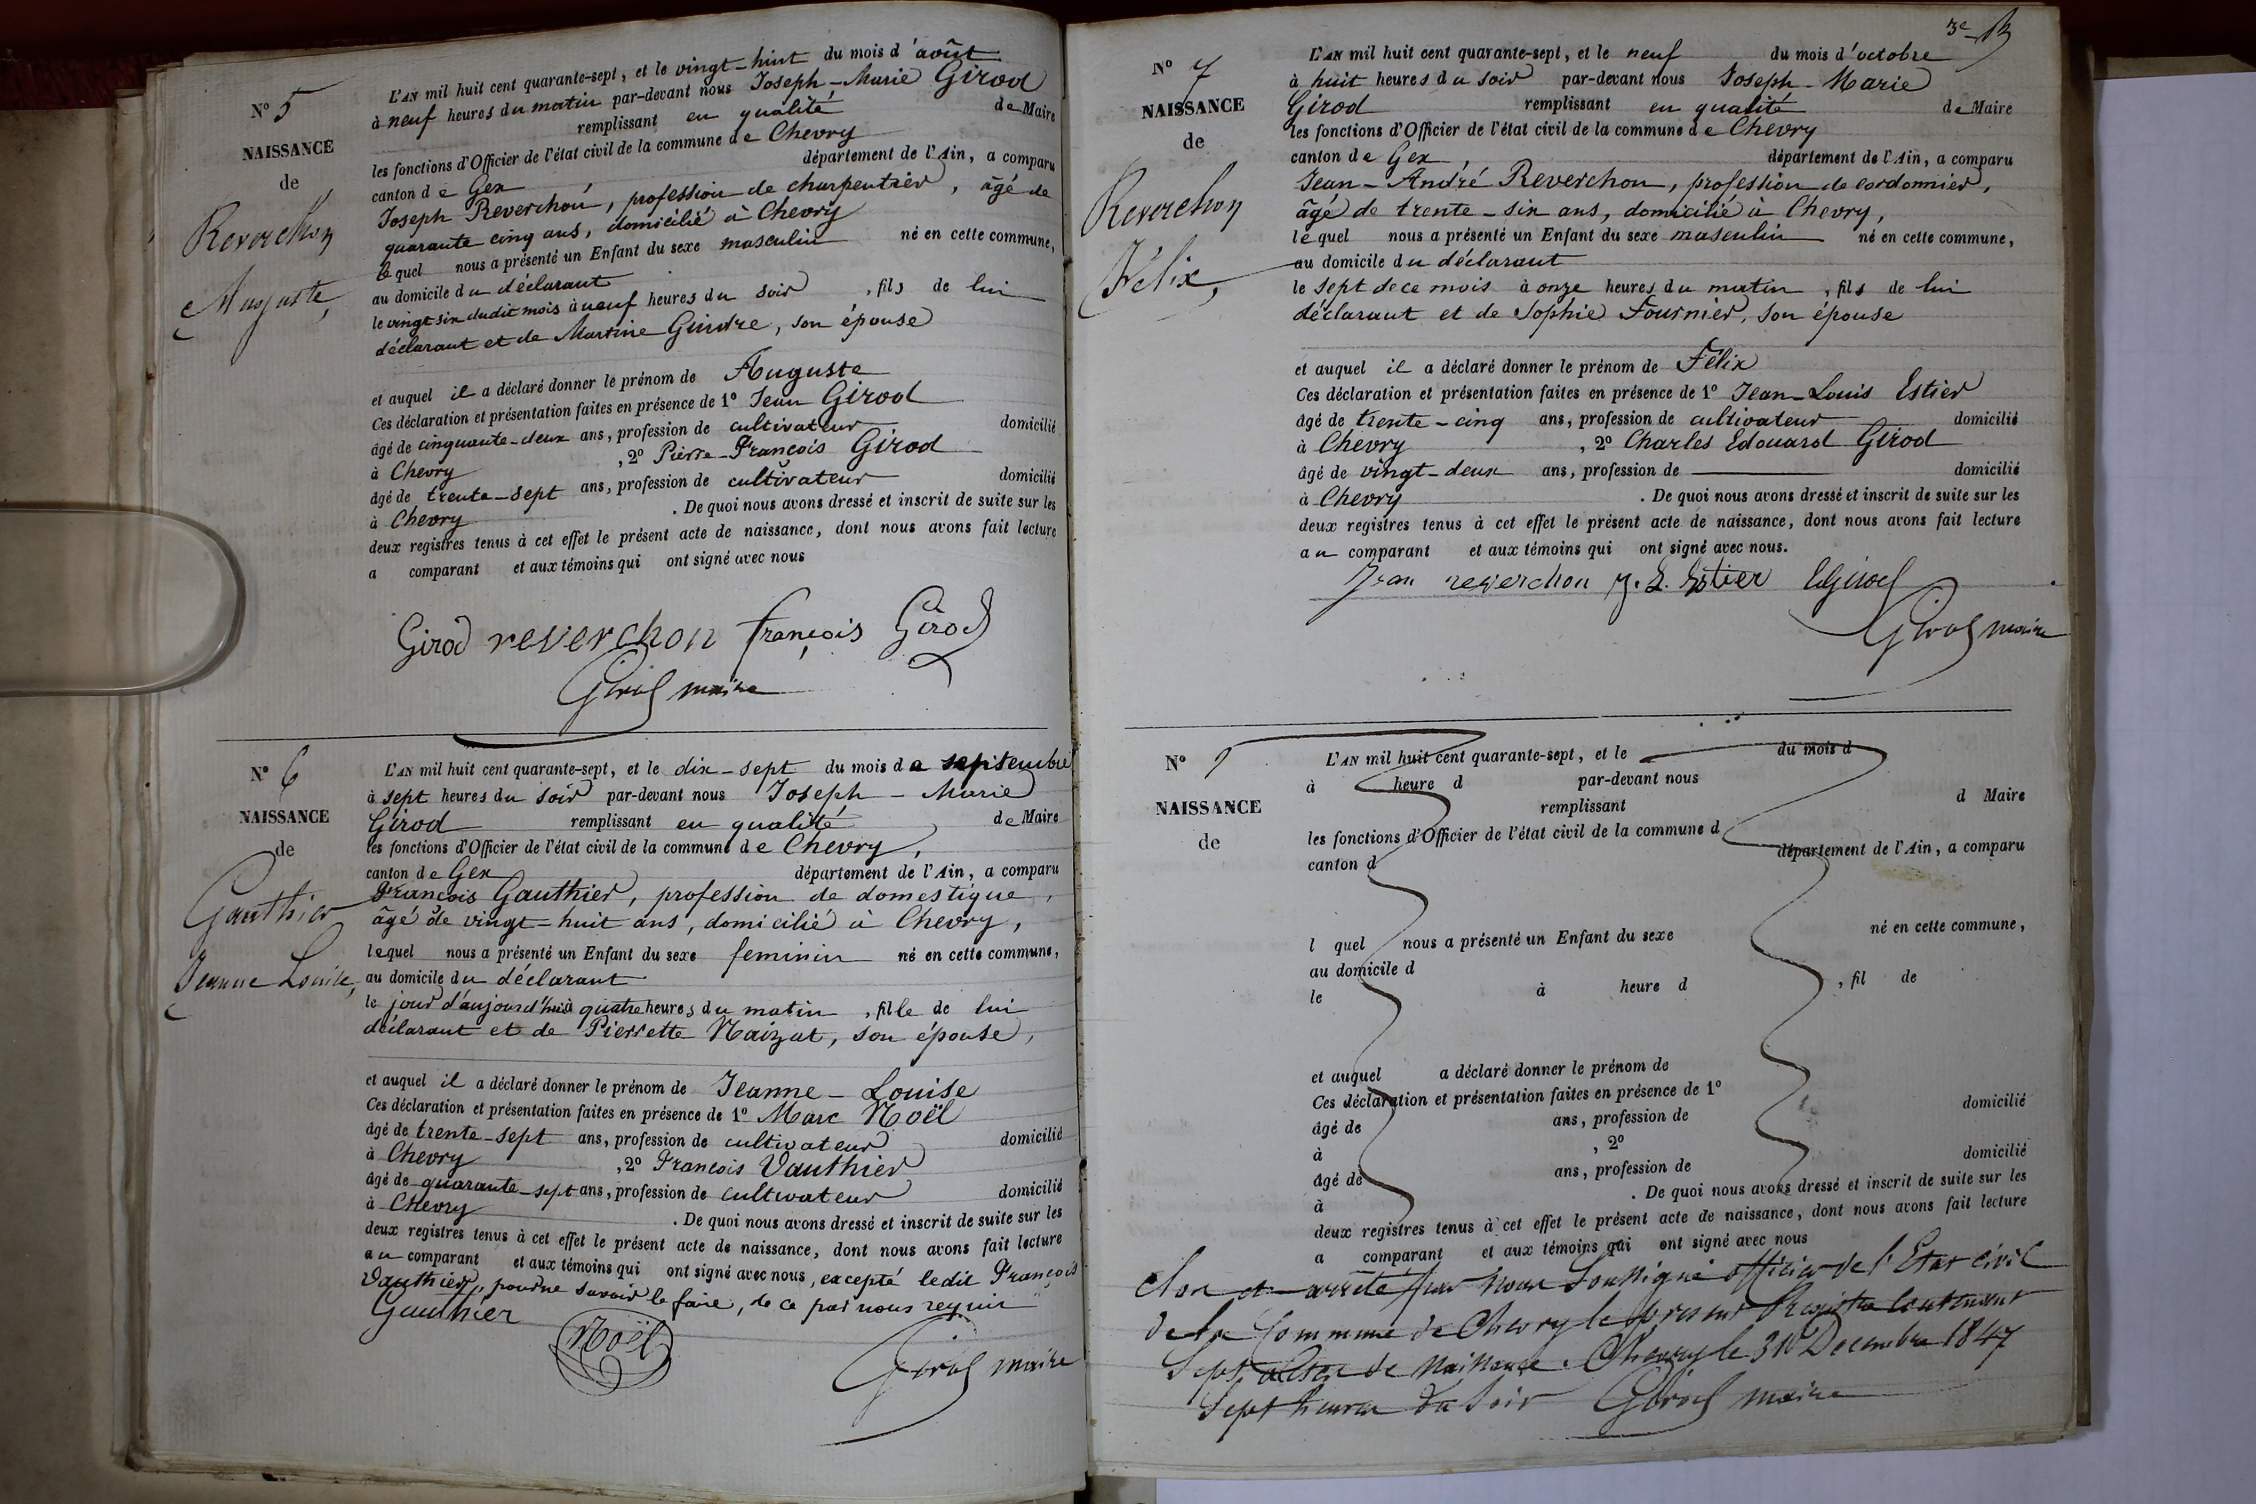 N° 5
NAISSANCE
de
Reverchon
Auguste,
L'AN mil huit cent quarante-sept, et le vingt-huit du mois d'août
à neuf heures du matin par-devant nous Joseph-Marie Girod
remplissant en qualité de Maire
les fonctions d'Officier de l'état civil de la commune de Chevry
canton de Gex département de l'Ain, a comparu
Joseph Reverchon, profession de charpentier, âgé de
quarante cinq ans, domicilié à Chevry
lequel nous a présenté un Enfant du sexe masculin né en cette commune,
au domicile du déclarant
le vingt six dudit mois à neuf heures du soir, fils de lui
déclarant et de Martine Gindre, son épouse
et auquel il a déclaré donner le prénom de Auguste
Ces déclaration et présentation faites en présence de 1° Jean Girod
âgé de cinquante-deux ans, profession de cultivateur domicilié
à Chevry, 2° Pierre-François Girod
âgé de trente-sept ans, profession de cultivateur domicilié
à Chevry. De quoi nous avons dressé et inscrit de suite sur les
deux registres tenus à cet effet le présent acte de naissance, dont nous avons fait lecture
a comparant et aux témoins qui ont signé avec nous
Girod reverchon françois Girod
Girod maire
N° 6
NAISSANCE
de
Gauthier
Jeanne Louise,
L'AN mil huit cent quarante-sept, et le dix-sept du mois de septembre
à sept heures du soir par-devant nous Joseph-Marie
Girod remplissant en qualité de Maire
les fonctions d'Officier de l'état civil de la commune de Chevry,
canton de Gex département de l'Ain, a comparu
François Gauthier, profession de domestique,
âgé de vingt-huit ans, domicilié à Chevry,
lequel nous a présenté un Enfant du sexe feminin né en cette commune,
au domicile du déclarant
le jour d'aujourd'hui à quatre heures du matin, fille de lui
déclarant et de Pierrette Naizat, son épouse,
et auquel il a déclaré donner le prénom de Jeanne-Louise
Ces déclaration et présentation faites en présence de 1° Marc Noël
âgé de trente-sept ans, profession de cultivateur domicilié
à Chevry, 2° François Vauthier
âgé de quarante-sept ans, profession de cultivateur domicilié
à Chevry. De quoi nous avons dressé et inscrit de suite sur les
deux registres tenus à cet effet le présent acte de naissance, dont nous avons fait lecture
au comparant et aux témoins qui ont signé avec nous, excepté ledit François
Vauthier, pour ne savoir le faire, de ce par nous requis
Gauthier Noël
Girod maire
3e
N° 7
NAISSANCE
de
Reverchon
Félix,
L'AN mil huit cent quarante-sept, et le neuf du mois d'octobre
à huit heures du soir par-devant nous Joseph-Marie
Girod remplissant en qualité de Maire
les fonctions d'Officier de l'état civil de la commune de Chevry
canton de Gex, département de l'Ain, a comparu
Jean-André Reverchon, profession de cordonnier,
âgé de trente-six ans, domicilié à Chevry,
lequel nous a présenté un Enfant du sexe masculin né en cette commune,
au domicile du déclarant
le sept de ce mois à onze heures du matin, fils de lui
déclarant et de Sophie Fournier, son épouse
et auquel il a déclaré donner le prénom de Félix
Ces déclaration et présentation faites en présence de 1° Jean-Louis Estier
âgé de trente-cinq ans, profession de cultivateur domicilié
à Chevry, 2° Charles Edouard Girod
âgé de vingt-deux ans, profession de domicilié
à Chevry. De quoi nous avons dressé et inscrit de suite sur les
deux registres tenus à cet effet le présent acte de naissance, dont nous avons fait lecture
au comparant et aux témoins qui ont signé avec nous.
Jean reverchon J. L. Estier EGirod
Girod maire
N°
NAISSANCE
de
L'AN mil huit cent quarante-sept, et le du mois d
à heure d par-devant nous
remplissant d Maire
les fonctions d'Officier de l'état civil de la commune d
canton d département de l'Ain, a comparu
l quel nous a présenté un Enfant du sexe né en cette commune,
au domicile d
le à heure d, fil de
et auquel a déclaré donner le prénom de
Ces déclaration et présentation faites en présence de 1°
âgé de ans, profession de domicilié
à, 2°
âgé de ans, profession de domicilié
à. De quoi nous avons dressé et inscrit de suite sur les
deux registres tenus à cet effet le présent acte de naissance, dont nous avons fait lecture
a comparant et aux témoins qui ont signé avec nous
Clos et arrêté par Nous Soussigné officier de l'Etat civil
de la Commune de Chevry le present Registre Contenant
Sept actes de Naissance. Chevry le 31 Decembre 1847
Sept heures du Soir Girod maire